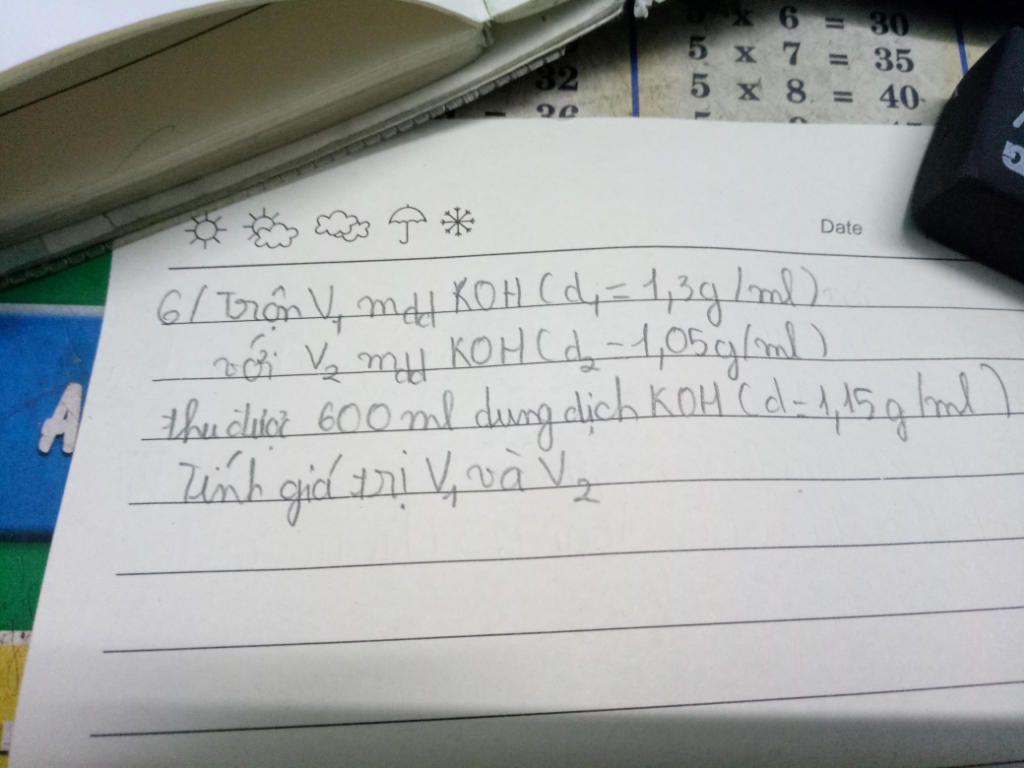 5 x 6 = 30
5 x 7 = 35
32
5 x 8 = 40
36
5
A
Date
6/ Trộn V₁ mdd KOH (d₁ = 1,3g/ml)
với V₂ mdd KOH (d₂ - 1,05g/ml)
thu được 600 ml dung dịch KOH (d = 1,15g/ml)
Tính giá trị V₁ và V₂